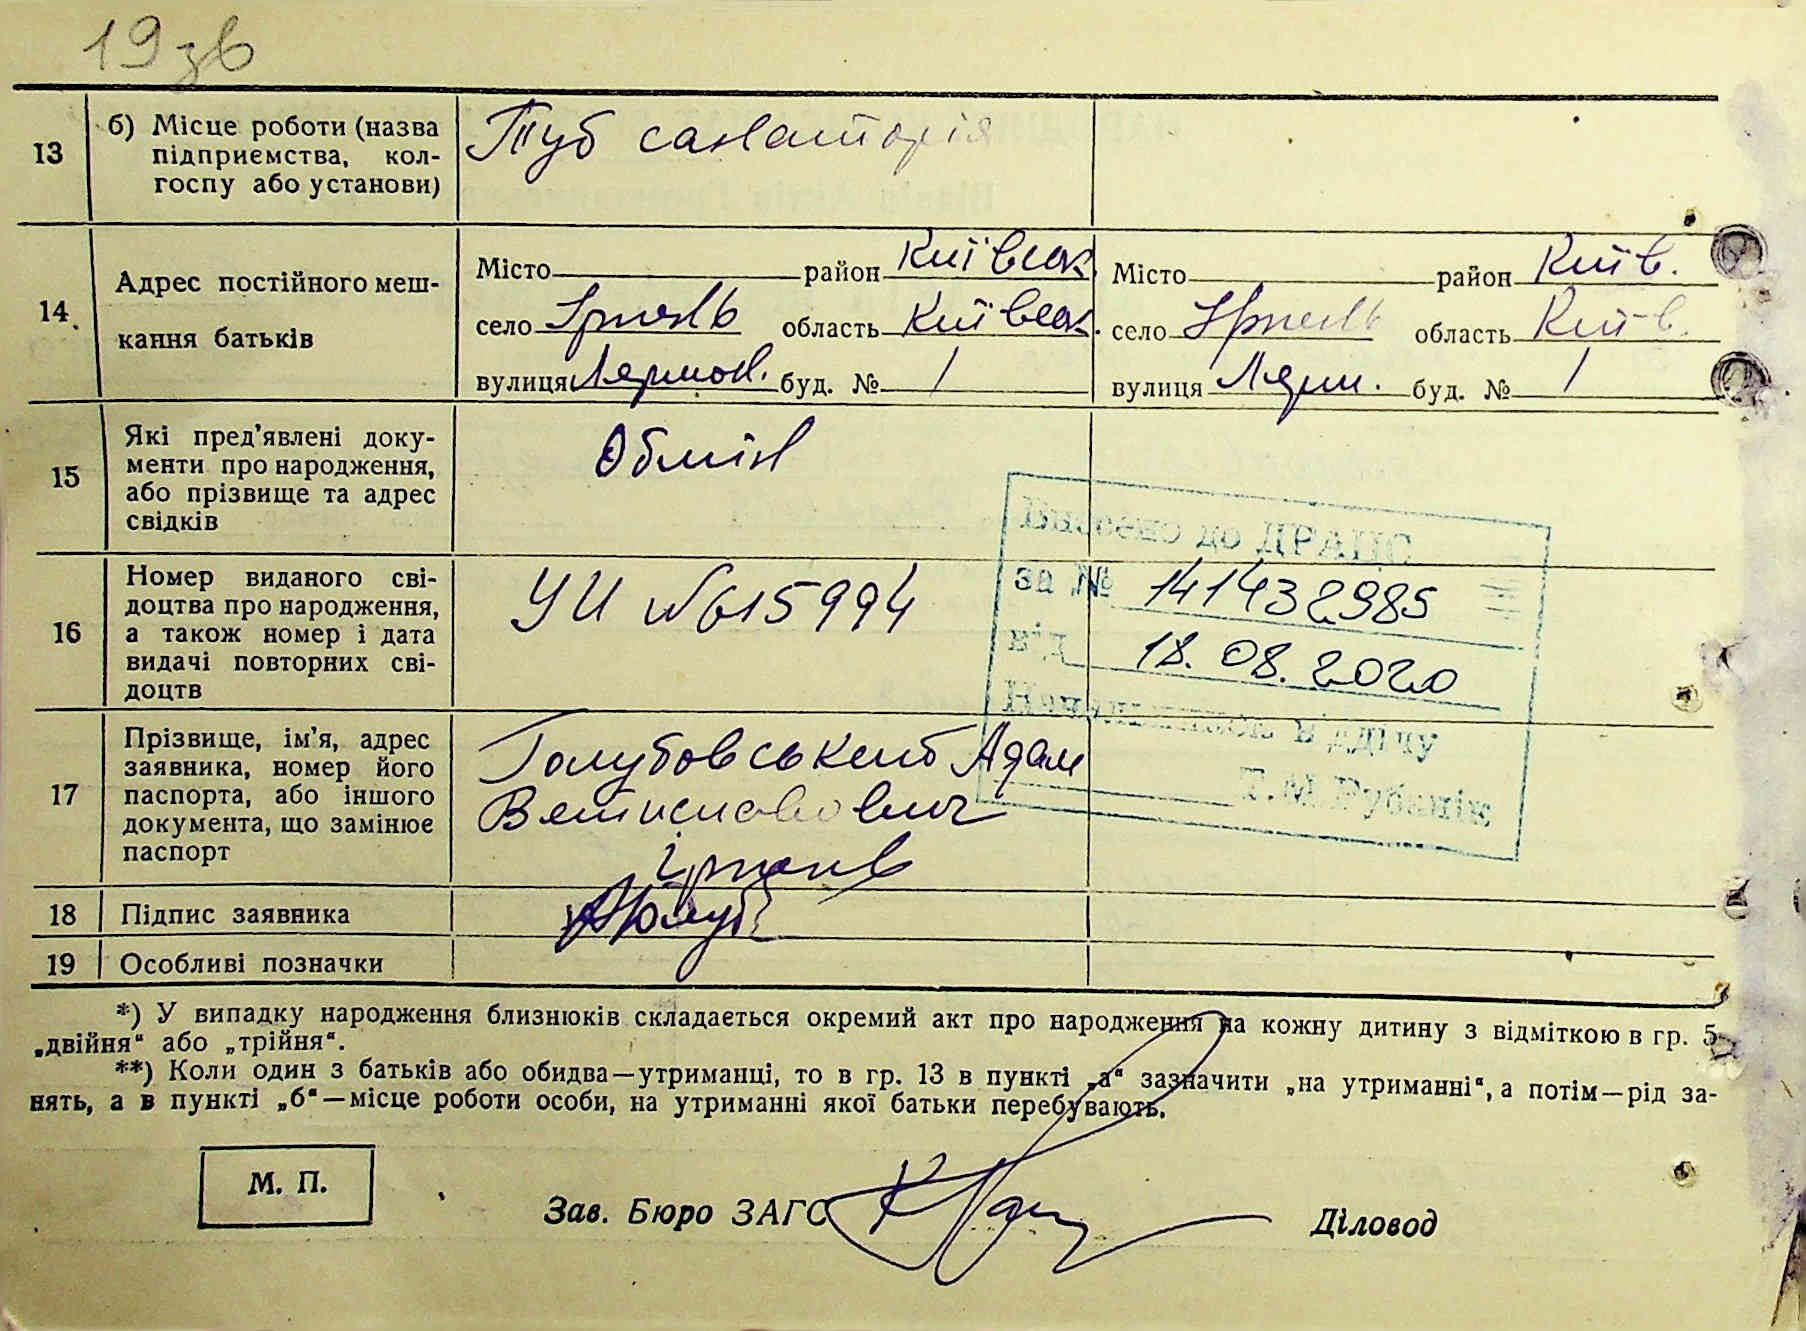 19 зв
13 б) Місце роботи (назва підприємства, колгоспу або установи) Туб санаторія
14 Адрес постійного мешкання батьків
Місто район Київськ. Місто район Київ.
село Ірпень область Київськ. село Ірпень область Київ.
вулиця Лермон. буд. № 1 вулиця Лерм. буд. № 1
15 Які пред'явлені документи про народження, або прізвище та адрес свідків Обмін
16 Номер виданого свідоцтва про народження, а також номер і дата видачі повторних свідоцтв УИ №615994
17 Прізвище, ім'я, адрес заявника, номер його паспорта, або іншого документа, що замінює паспорт Голубовський Адам
Ірпень
18 Підпис заявника
19 Особливі позначки
Внесено до ДРАЦС
за № 141432985
від 18.08.2020
Начальник відділу
Т.М.Рубанік
*) У випадку народження близнюків складається окремий акт про народження на кожну дитину з відміткою в гр. 5
„двійня“ або „трійня“.
**) Коли один з батьків або обидва—утриманці, то в гр. 13 в пункті „а“ зазначити „на утриманні“, а потім—рід за-
нять, а в пункті „б“—місце роботи особи, на утриманні якої батьки перебувають.
М. П.
Зав. Бюро ЗАГС Діловод